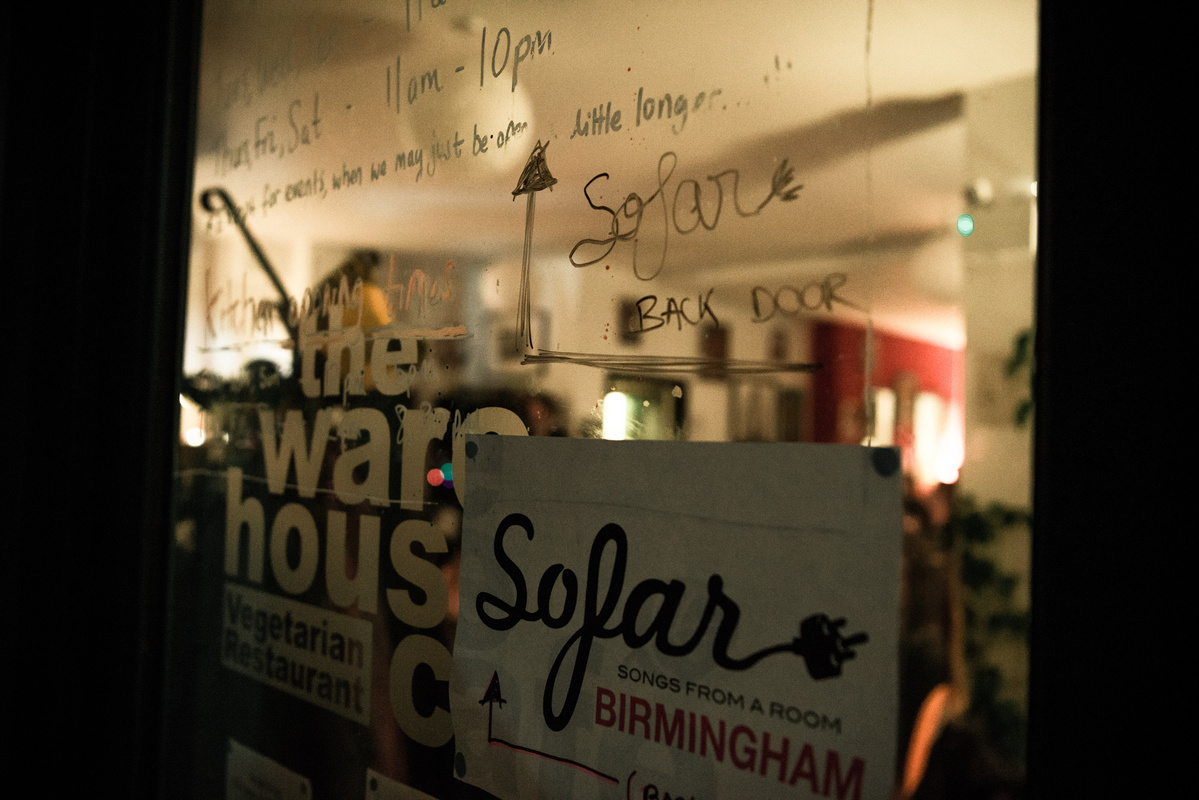 11am - 10pm
Thurs, Fri, Sat -
for events, when we may just be open little longer...
Sofar
BACK DOOR
Kitchen opening times
the
ware
hous
C
Vegetarian
Restaurant
Sofar
SONGS FROM A ROOM
BIRMINGHAM